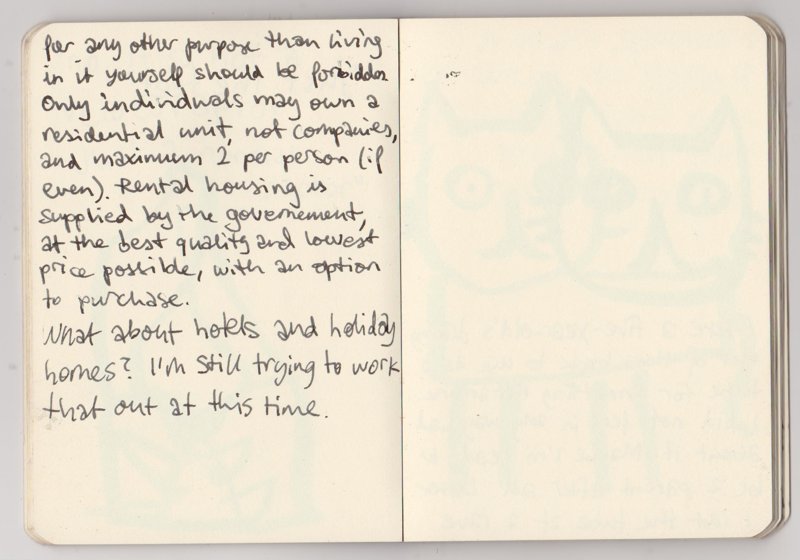 for any other purpose than living
in it yourself should be forbidden
Only individuals may own a
residential unit, not companies,
and maximum 2 per person (if
even). Rental housing is
supplied by the governement,
at the best quality and lowest
price possible, with an option
to purchase.
What about hotels and holiday
homes? I'm still trying to work
that out at this time.